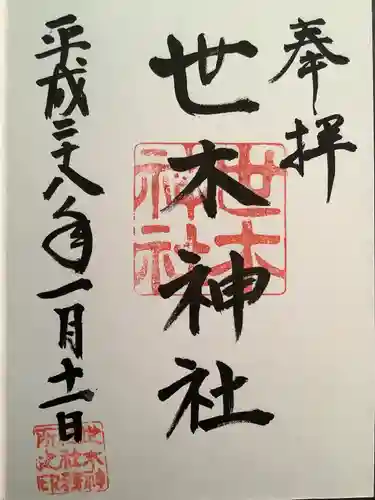 奉拝
世木神社
世木神社
平成二十八年一月十一日
世木神
社社務
所之印